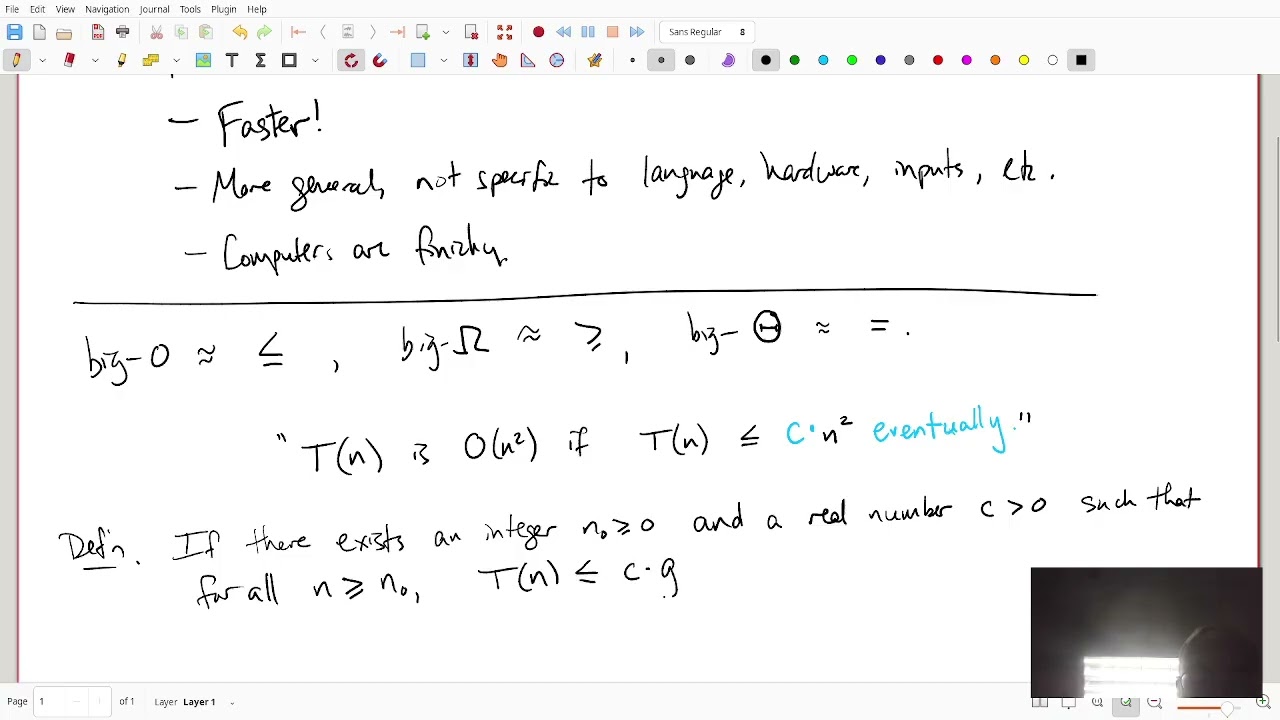 File Edit View Navigation Journal Tools Plugin Help
Sans Regular 8
– Faster!
– More general, not specific to language, hardware, inputs, etc.
– Computers are finicky
big-O ≈ ≤ , big-Ω ≈ ≥ , big-Θ ≈ = .
"T(n) is O(n²) if T(n) ≤ c·n² eventually."
Defn. If there exists an integer n₀ ≥ 0 and a real number c > 0 such that
for all n ≥ n₀, T(n) ≤ c·g
Page 1 of 1 Layer Layer 1